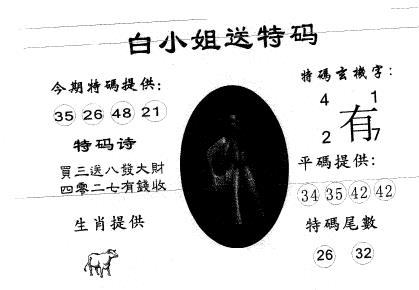 白小姐送特码
今期特碼提供:
35 26 48 21
特码诗
買三送八發大財
四零二七有錢收
生肖提供
特碼玄機字:
4 1
有
2 7
平碼提供:
34 35 42 42
特碼尾數
26 32